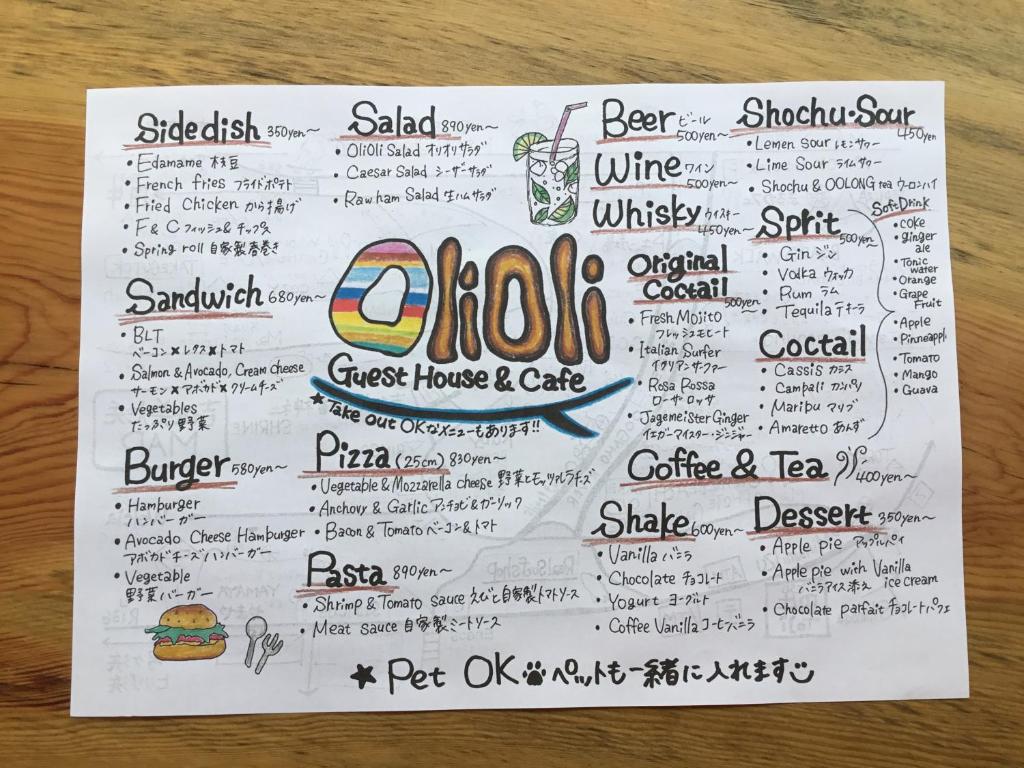 Side dish 350yen〜
• Edamame 枝豆
• French fries フライドポテト
• Fried Chicken から揚げ
• F & C フィッシュ&チップス
• Spring roll 自家製春巻き
Sandwich 680yen〜
• BLT
ベーコン×レタス×トマト
• Salmon & Avocado, Cream cheese
サーモン×アボカド×クリームチーズ
• Vegetables
たっぷり野菜
Burger 580yen〜
• Hamburger
ハンバーガー
• Avocado Cheese Hamburger
アボカドチーズハンバーガー
• Vegetable
野菜バーガー
Salad 890yen〜
• OliOli Salad オリオリサラダ
• Caesar Salad シーザーサラダ
• Raw ham Salad 生ハムサラダ
OliOli
Guest House & Cafe
★ Take out OKなメニューもあります!!
Pizza (25cm) 830yen〜
• Vegetable & Mozzarella cheese 野菜とモッツァレラチーズ
• Anchovy & Garlic アンチョビ&ガーリック
• Bacon & Tomato ベーコン&トマト
Pasta 890yen〜
• Shrimp & Tomato sauce えびと自家製トマトソース
• Meat sauce 自家製ミートソース
Beer ビール
500yen〜
Wine ワイン
500yen〜
Whisky ウイスキー
450yen〜
Original
Coctail
500yen〜
• Fresh Mojito
フレッシュモヒート
• Italian Surfer
イタリアンサーファー
• Rosa Rossa
ローザ・ロッサ
• Jagemeister Ginger
イエガーマイスター・ジンジャー
Shochu・Sour
450yen
• Lemen Sour レモンサワー
• Lime Sour ライムサワー
• Shochu & OOLONG tea ウーロンハイ
Sprit
500yen〜
• Gin ジン
• Vodka ウォッカ
• Rum ラム
• Tequila テキーラ
Coctail
• Cassis カシス
• Campali カンパリ
• Maribu マリブ
• Amaretto あんず
Soft Drink
• Coke
• ginger
ale
• Tonic
water
• Orange
• Grape
Fruit
• Apple
• Pinneappl
• Tomato
• Mango
• Guava
Coffee & Tea 400yen〜
Shake 600yen〜
• Vanilla バニラ
• Chocolate チョコレート
• Yogurt ヨーグルト
• Coffee Vanilla コーヒーバニラ
Dessert 350yen〜
• Apple pie アップルパイ
• Apple pie with Vanilla
ice cream
バニラアイス添え
• Chocolate parfait チョコレートパフェ
★ Pet OK ペットも一緒に入れます